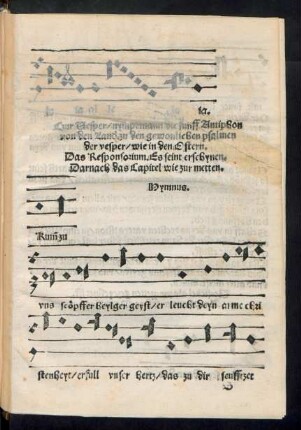 ia.
Zur Vesper / nympt man die funff Antiphon
von den Laudzu den gewonlichen psalmen
der vesper / wie in den Ostern.
Das Responsorium. Es seint erschynen.
Darnach das Capitel wie zur metten.
Hymnus.
Kum̃ zu
vns scöpffer heylger geyst / er leucht deyn arme chri
stenheyt / erfüll vnser hertz / das zu dir seuffzet